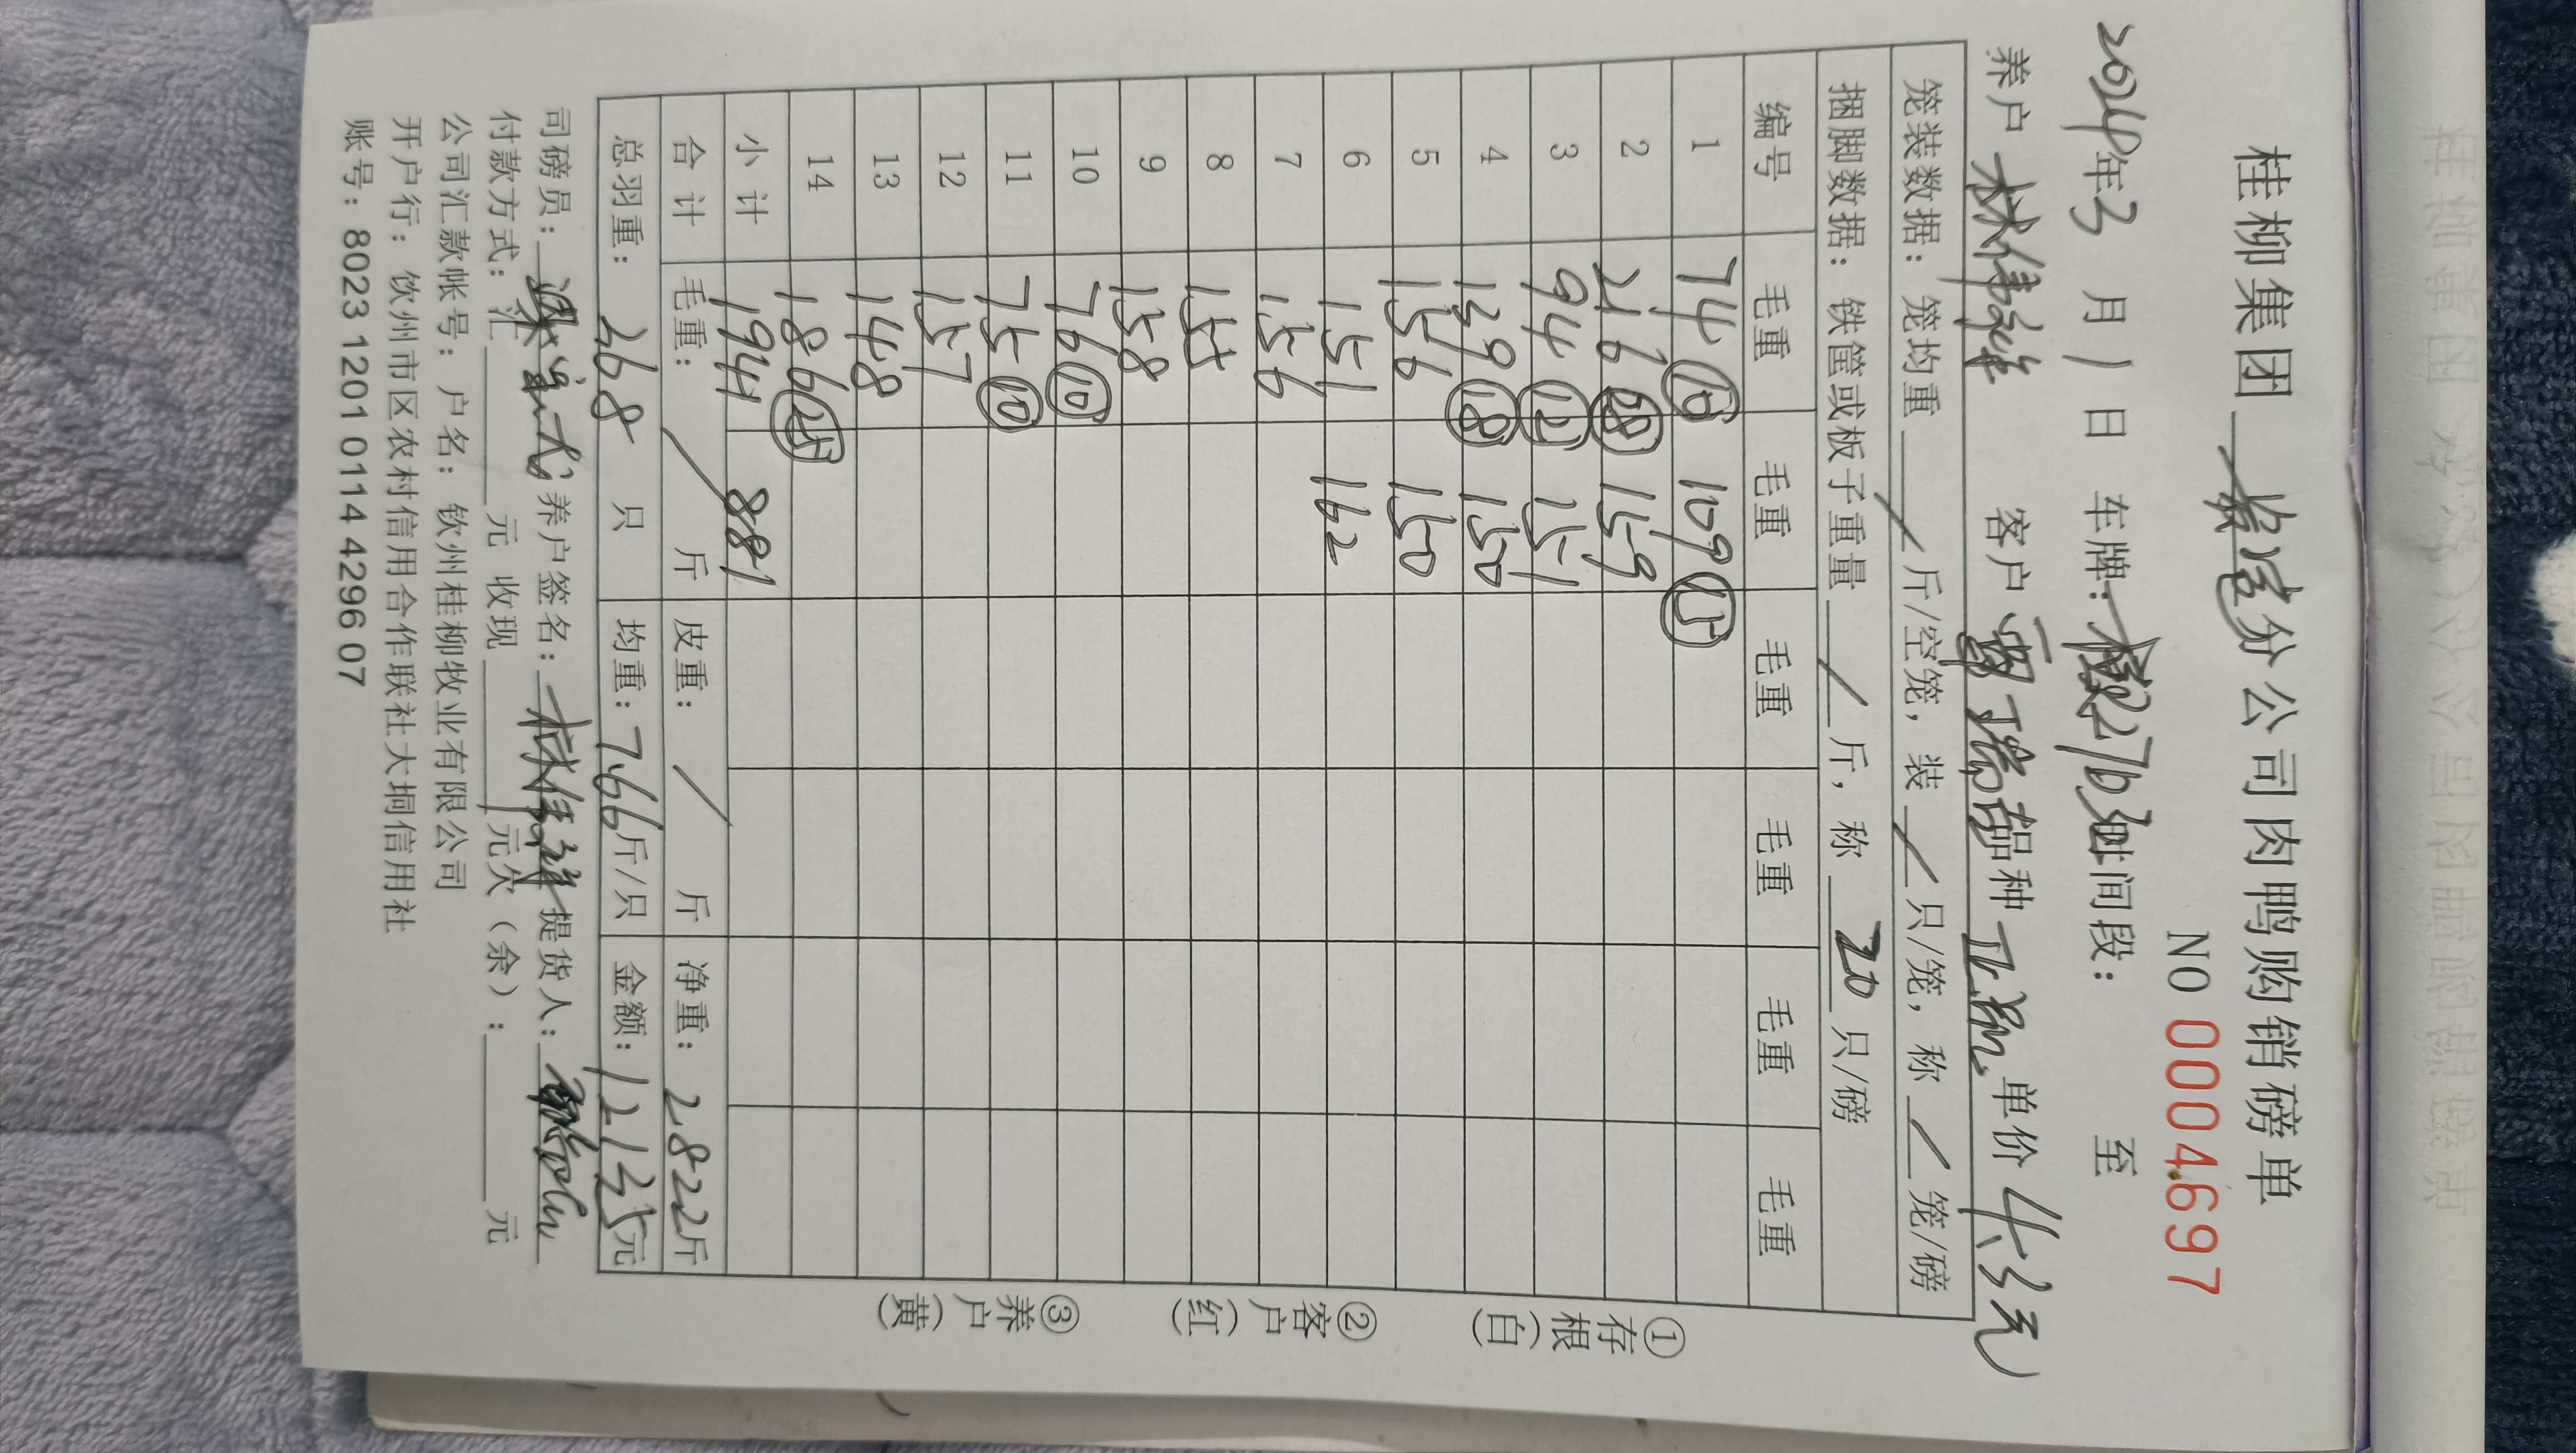 桂柳集团 分公司肉鸭购销磅单
NO 0004697
2024年3月1日 车牌: 时间段: 至
养户 林伟祥 客户 品种 单价 4.3元
笼装数据: 笼均重 / 斤/空笼, 装 / 只/笼, 称 / 笼/磅
捆脚数据: 铁筐或板子重量 / 斤, 称 20 只/磅
编号 毛重 毛重 毛重 毛重 毛重 毛重
1 74 ⑩ 109 ⑮
2 216 159
3 94 ⑫ 151
4 139 ⑱ 150
5 156 150
6 151 162
7 156
8
9 158
10 76 ⑩
11 75 ⑩
12 157
13 148
14 186 ㉕
小计 1941 881
合计 毛重: / 斤 皮重: / 斤 净重: 2822斤
总羽重: 368 只 均重: 7.66斤/只 金额: 12135元
司磅员: 养户签名: 林伟祥 提货人:
付款方式: 汇 元 收现 元欠(余): 元
公司汇款帐号: 户名: 钦州桂柳牧业有限公司
开户行: 钦州市区农村信用合作联社大垌信用社
账号: 8023 1201 0114 4296 07
①存根(白) ②客户(红) ③养户(黄)